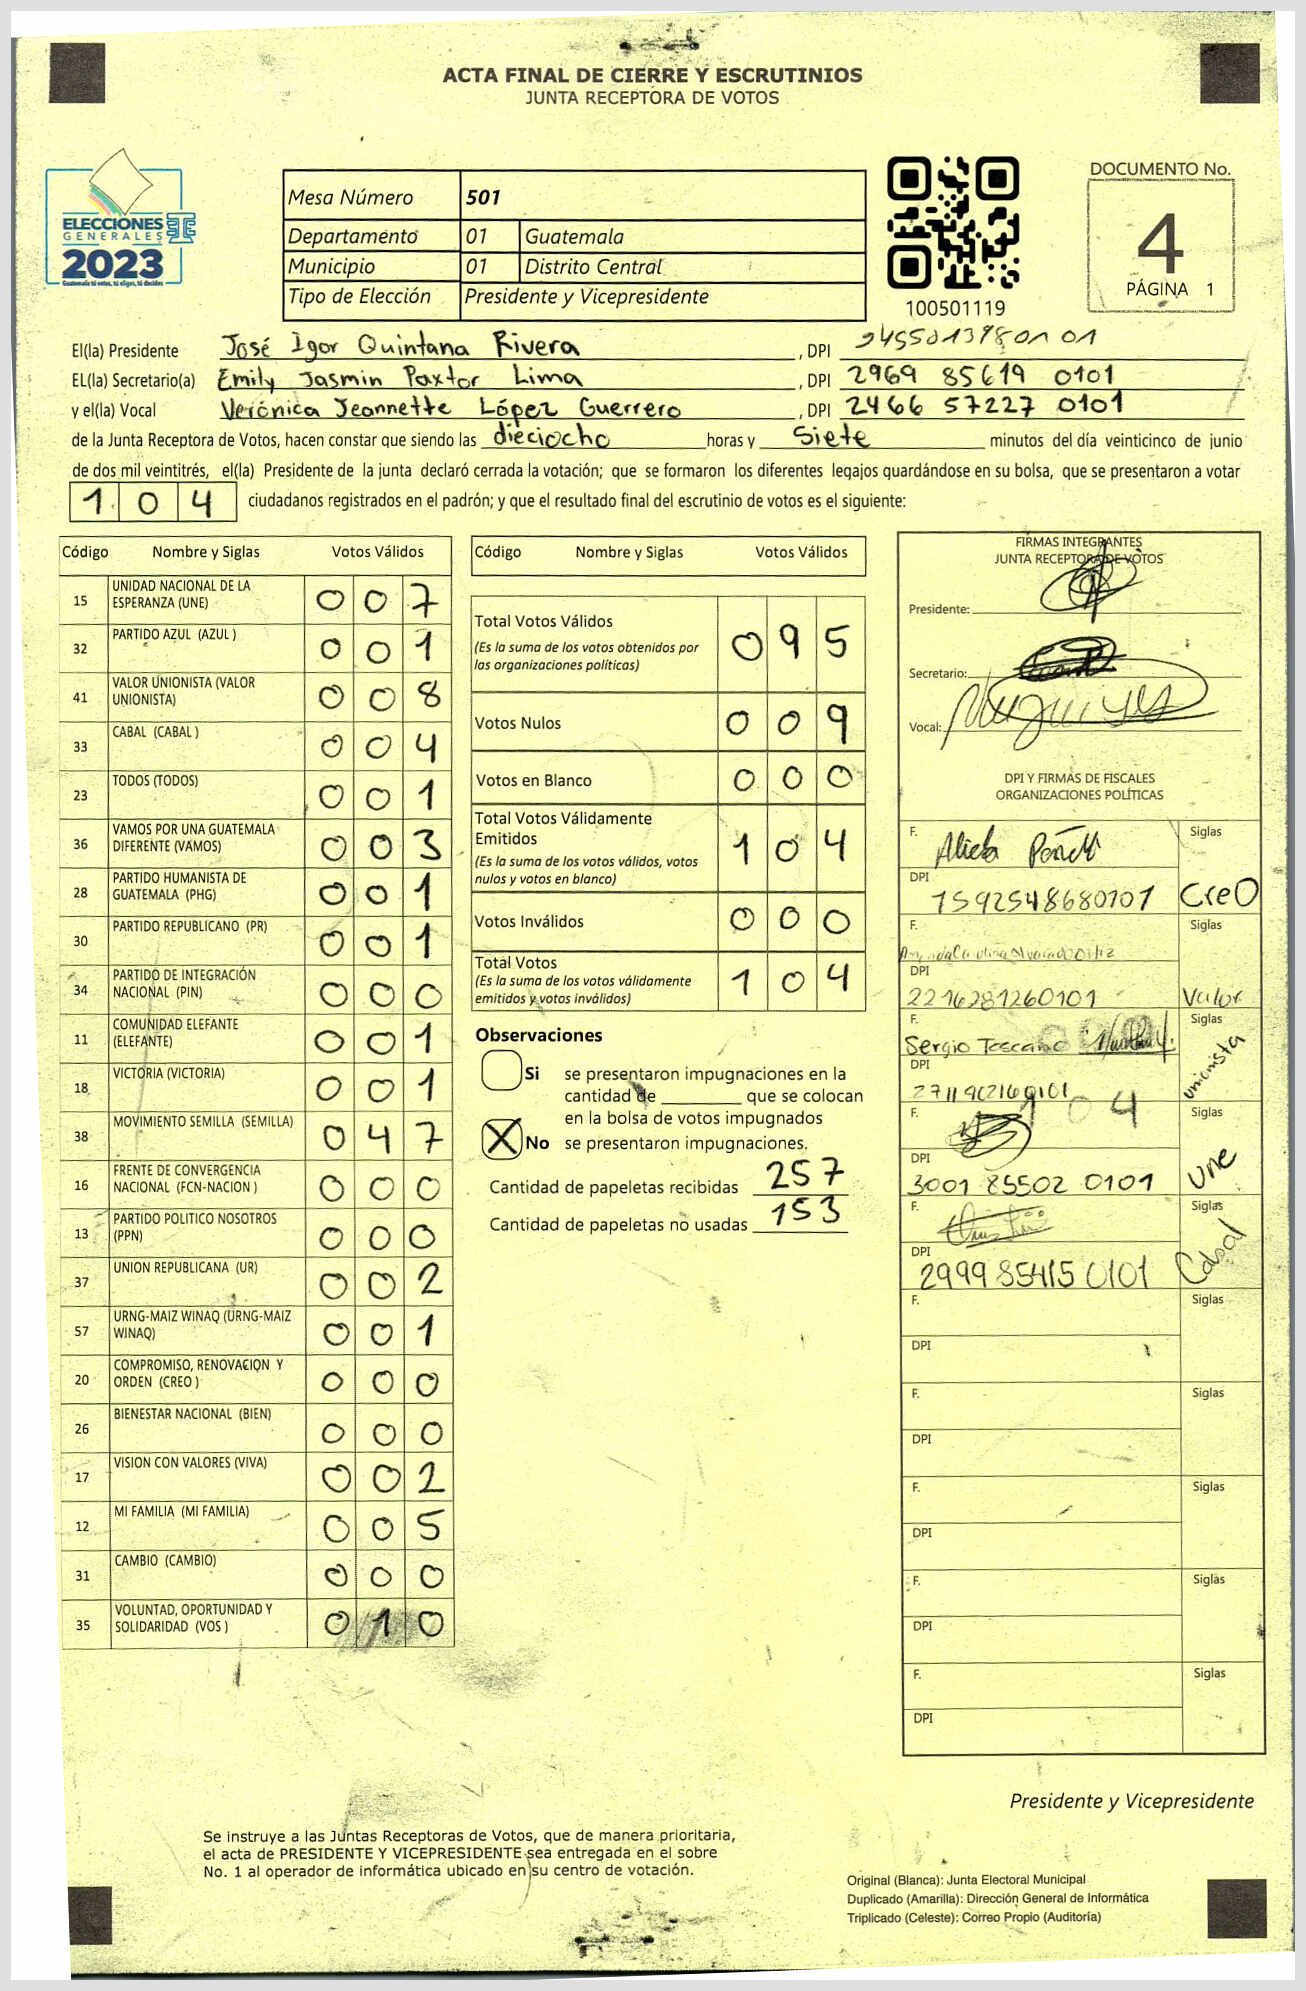 ACTA FINAL DE CIERRE Y ESCRUTINIOS
JUNTA RECEPTORA DE VOTOS
ELECCIONES
GENERALES
2023
Guatemala tú votas, tú eliges, tú decides
Mesa Número 501
Departamento 01 Guatemala
Municipio 01 Distrito Central
Tipo de Elección Presidente y Vicepresidente
100501119
DOCUMENTO No.
4
PÁGINA 1
El(la) Presidente José Igor Quintana Rivera , DPI
EL(la) Secretario(a) Emily Jasmin Paxtor Lima , DPI 2969 85619 0101
y el(la) Vocal Verónica Jeannette López Guerrero , DPI 2466 57227 0101
de la Junta Receptora de Votos, hacen constar que siendo las dieciocho horas y Siete minutos del día veinticinco de junio
de dos mil veintitrés, el(la) Presidente de la junta declaró cerrada la votación; que se formaron los diferentes legajos guardándose en su bolsa, que se presentaron a votar
1 0 4 ciudadanos registrados en el padrón; y que el resultado final del escrutinio de votos es el siguiente:
Código Nombre y Siglas Votos Válidos
15 UNIDAD NACIONAL DE LA ESPERANZA (UNE) 0 0 7
32 PARTIDO AZUL (AZUL ) 0 0 1
41 VALOR UNIONISTA (VALOR UNIONISTA) 0 0 8
33 CABAL (CABAL ) 0 0 4
23 TODOS (TODOS) 0 0 1
36 VAMOS POR UNA GUATEMALA DIFERENTE (VAMOS) 0 0 3
28 PARTIDO HUMANISTA DE GUATEMALA (PHG) 0 0 1
30 PARTIDO REPUBLICANO (PR) 0 0 1
34 PARTIDO DE INTEGRACIÓN NACIONAL (PIN) 0 0 0
11 COMUNIDAD ELEFANTE (ELEFANTE) 0 0 1
18 VICTORIA (VICTORIA) 0 0 1
38 MOVIMIENTO SEMILLA (SEMILLA) 0 4 7
16 FRENTE DE CONVERGENCIA NACIONAL (FCN-NACION ) 0 0 0
13 PARTIDO POLITICO NOSOTROS (PPN) 0 0 0
37 UNION REPUBLICANA (UR) 0 0 2
57 URNG-MAIZ WINAQ (URNG-MAIZ WINAQ) 0 0 1
20 COMPROMISO, RENOVACION Y ORDEN (CREO ) 0 0 0
26 BIENESTAR NACIONAL (BIEN) 0 0 0
17 VISION CON VALORES (VIVA) 0 0 2
12 MI FAMILIA (MI FAMILIA) 0 0 5
31 CAMBIO (CAMBIO) 0 0 0
35 VOLUNTAD, OPORTUNIDAD Y SOLIDARIDAD (VOS ) 0 1 0
Código Nombre y Siglas Votos Válidos
Total Votos Válidos 0 9 5
(Es la suma de los votos obtenidos por
las organizaciones políticas)
Votos Nulos 0 0 9
Votos en Blanco 0 0 0
Total Votos Válidamente
Emitidos 1 0 4
(Es la suma de los votos válidos, votos
nulos y votos en blanco)
Votos Inválidos 0 0 0
Total Votos 1 0 4
(Es la suma de los votos válidamente
emitidos y votos inválidos)
Observaciones
Si se presentaron impugnaciones en la
cantidad de ________ que se colocan
en la bolsa de votos impugnados
X No se presentaron impugnaciones.
Cantidad de papeletas recibidas 257
Cantidad de papeletas no usadas 153
FIRMAS INTEGRANTES
JUNTA RECEPTORA DE VOTOS
Presidente:
Secretario:
Vocal:
DPI Y FIRMAS DE FISCALES
ORGANIZACIONES POLÍTICAS
F. Siglas
DPI 1592548680101 CreO
F. Siglas
DPI 2216281260101 Valor
F. Sergio Toscano Siglas
DPI 2711902160101 unionista
F. 1 0 4 Siglas
DPI 3001 85502 0101 Une
F. Siglas
DPI 2999 85415 0101 Cabal
F. Siglas
DPI
F. Siglas
DPI
F. Siglas
DPI
F. Siglas
DPI
F. Siglas
DPI
Presidente y Vicepresidente
Se instruye a las Juntas Receptoras de Votos, que de manera prioritaria,
el acta de PRESIDENTE Y VICEPRESIDENTE sea entregada en el sobre
No. 1 al operador de informática ubicado en su centro de votación.
Original (Blanca): Junta Electoral Municipal
Duplicado (Amarilla): Dirección General de Informática
Triplicado (Celeste): Correo Propio (Auditoría)